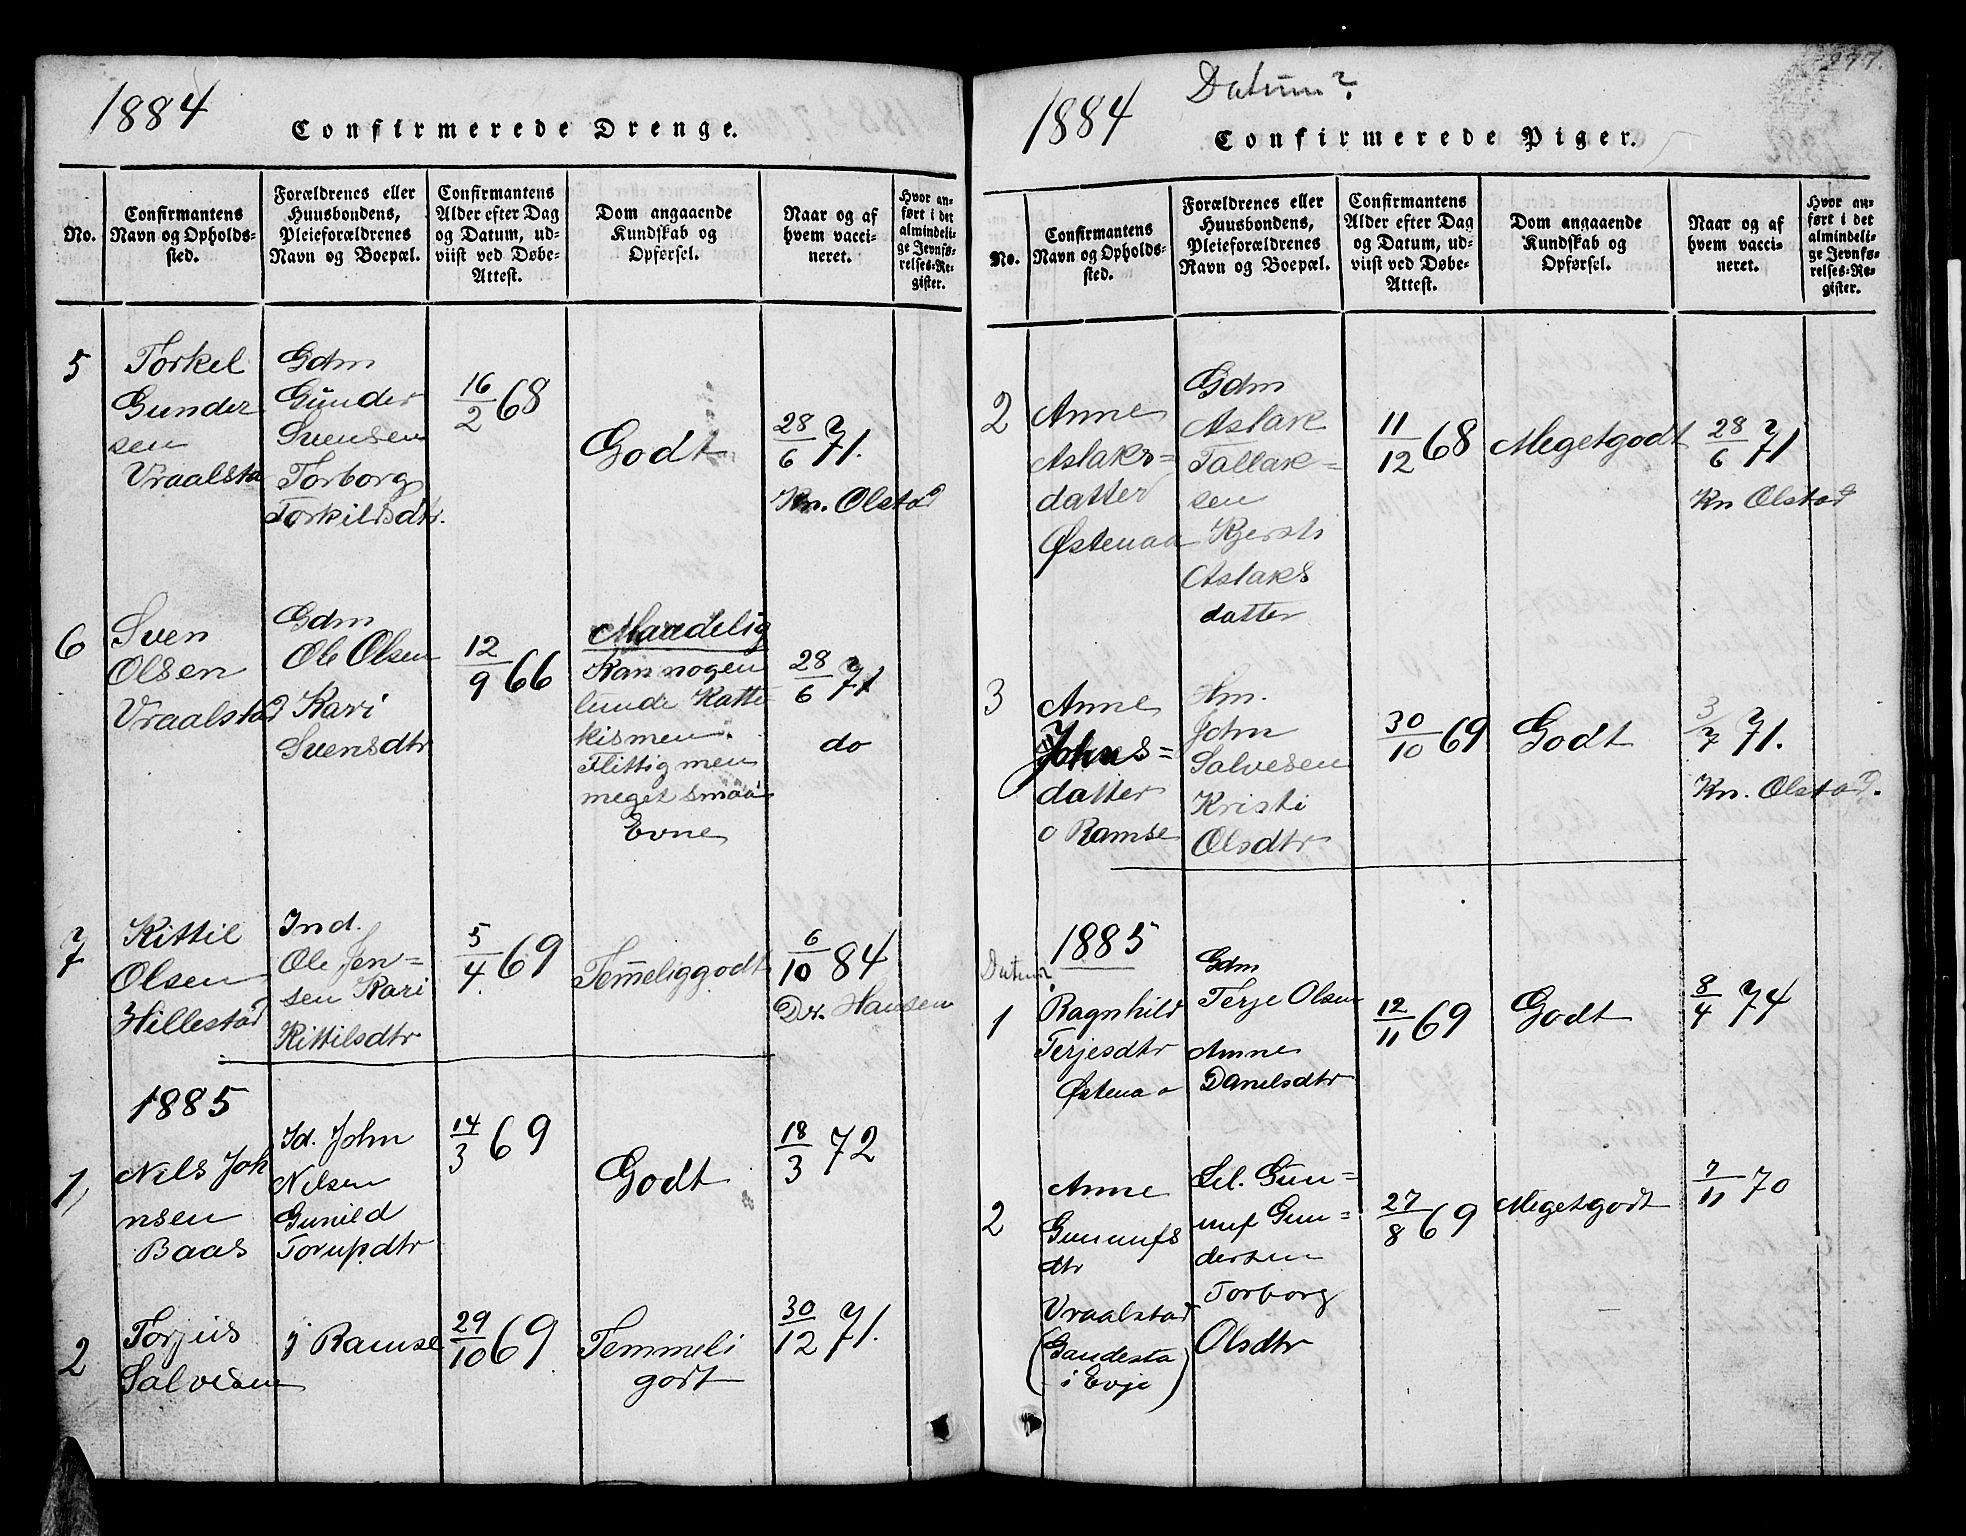 1884
Confirmerede Drenge.
No.
Confirmantens
Navn og Opholds-
sted.
Forældrenes eller
Huusbondens,
Pleieforældrenes
Navn og Boepæl.
Confirmantens
Alder efter Dag
og Datum, ud-
viist ved Døbe-
Attest.
Dom angaaende
Kundskab og
Opførsel.
Naar og af
hvem vacci-
neret.
Hvor an-
ført i det
almindeli-
ge Jevnfø-
relses-Re-
gister.
5
Torkel
Gunder
sen
Vraalsta
Gdm
Gunder
Svensen
Torborg
Torkildsdtr.
16/2 68
Godt
28/6 71.
Kn. Olstad
6
Sven
Olsen
Vraalstad
Gdm
Ole Olsen
Kari
Svensdtr
12/9 66
Maadelig
Kan nogen
lunde Katte
kismen.
Flittig men
meget smaa
Evne
28/6 71
do
7
Kittil
Olsen
Hillestad
Ind.
Ole Jen-
sen Kari
Kittilsdtr
5/4 69
Temeliggodt
6/10 84
Dr. Hansen
1885
1,
Nils Joh
nsen
Baas
Id. John
Nelsen
Gunild
Torupdtr
14/3 69
Godt
18/3 72
2
Torjus
Salvesen
j Ramse
29/10 69
Temmeli
godt
30/12 71.
1884
Datum?
277.
Confirmerede Piger.
No.
Confirmantens
Navn og Opholds-
sted.
Forældrenes eller
Huusbondens,
Pleieforældrenes
Navn og Boepæl.
Confirmantens
Alder efter Dag
og Datum, ud-
viist ved Døbe-
Attest.
Dom angaaende
Kundskab og
Opførsel.
Naar og af
hvem vacci-
neret.
Hvor an-
ført i det
almindeli-
ge Jevnfø-
relses-Re-
gister.
2
Anne
Aslaks=
datter
Østenaa
Gdm
Aslak
Tallak=
sen
Kjersti
Aslaks
datter
11/12 68
Megetgodt
28/6 71
Kn Olstad
3
Anne
Johns=
datter
o Ramse
Hm.
John
Salvesen
Kristi
Olsdtr
30/10 69
Godt
3/7 71.
Kn. Olstad.
1885
Datum?
1
Ragnhild
Terjesdtr
Østenaa
Gdm
Terje Olsen
Anne
Danelsdtr
12/11 69
Godt
8/4 74
2
Anne
Gunnufs
dtr
Vraalstad
(Gaudesta
i Evje)
Sel. Gun=
nuf Gun=
dersen
Torborg
Olsdtr
27/8 69
Megetgodt
7/11 70